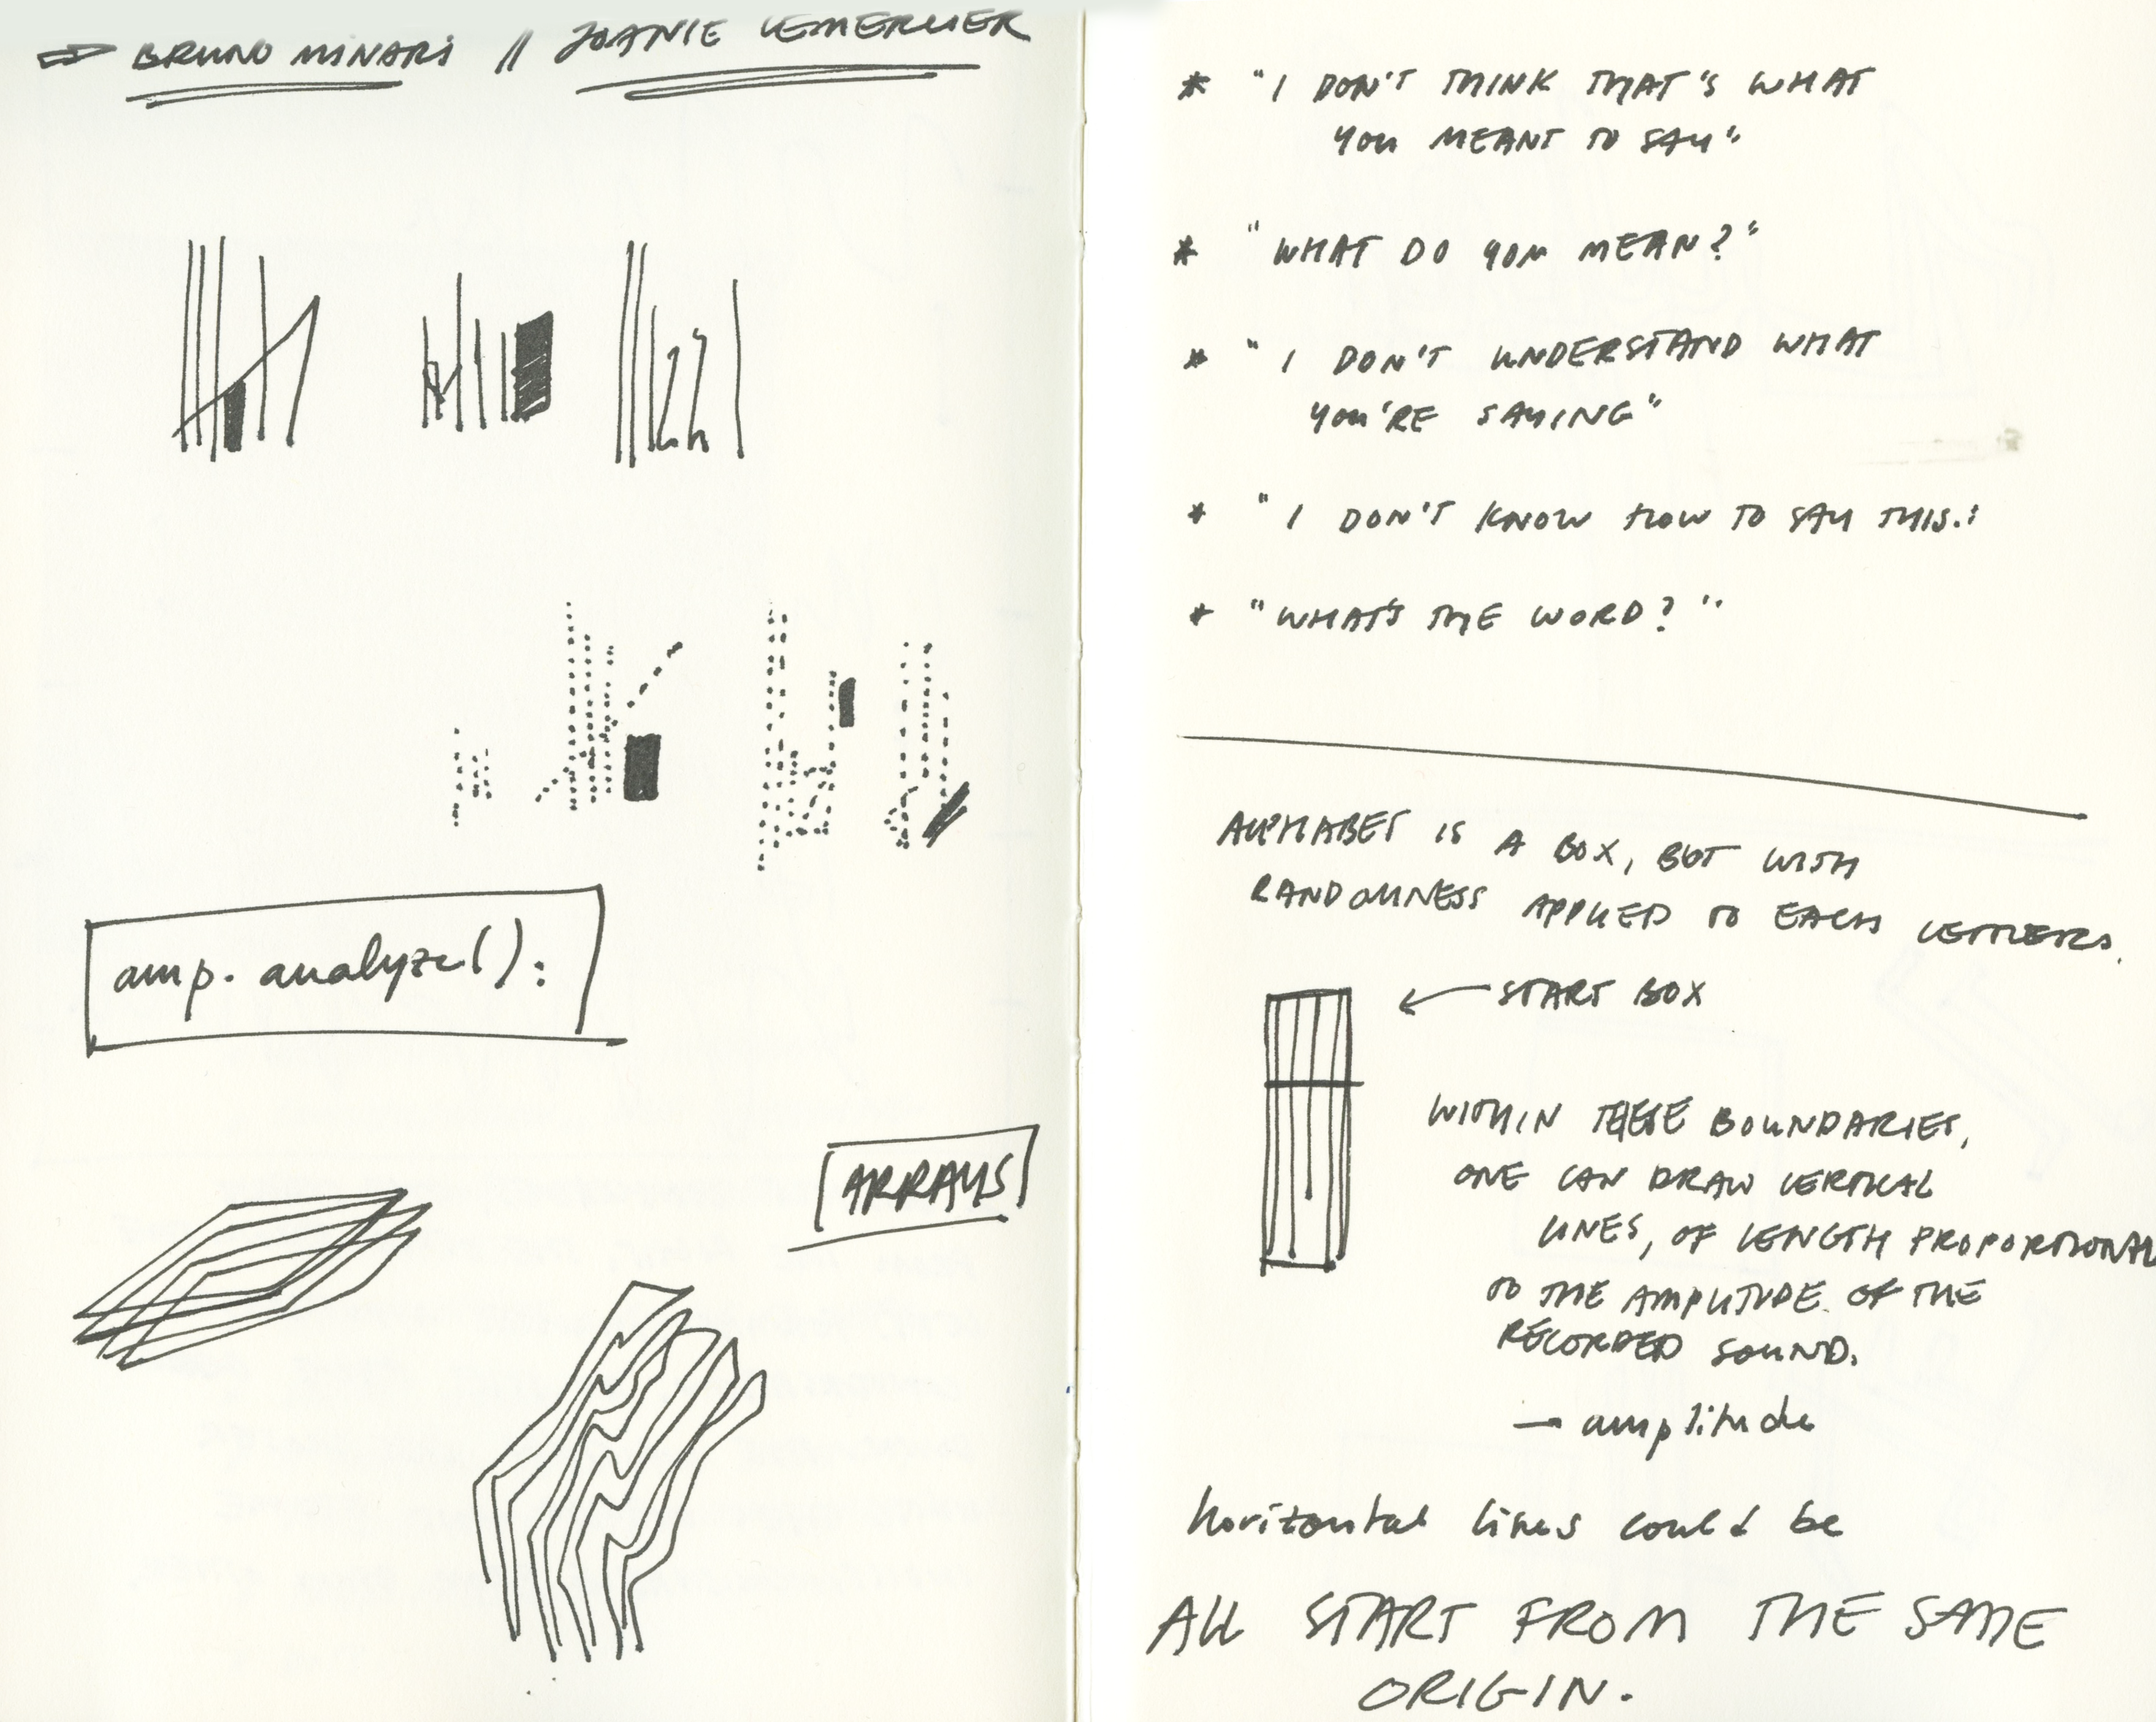 BRUNO MINARI // JOANIE LEMERCIER
amp. analyze():
[ARRAYS]
* "I DON'T THINK THAT'S WHAT
YOU MEANT TO SAY"
* "WHAT DO YOU MEAN?"
* "I DON'T UNDERSTAND WHAT
YOU'RE SAYING"
* "I DON'T KNOW HOW TO SAY THIS."
* "WHAT'S THE WORD?"
ALPHABET IS A BOX, BUT WITH
RANDOMNESS APPLIED TO EACH LETTERS.
← START BOX
WITHIN THESE BOUNDARIES,
ONE CAN DRAW VERTICAL
LINES, OF LENGTH PROPORTIONAL
TO THE AMPLITUDE OF THE
RECORDED SOUND.
→ amplitude
horizontal lines could be
ALL START FROM THE SAME
ORIGIN.